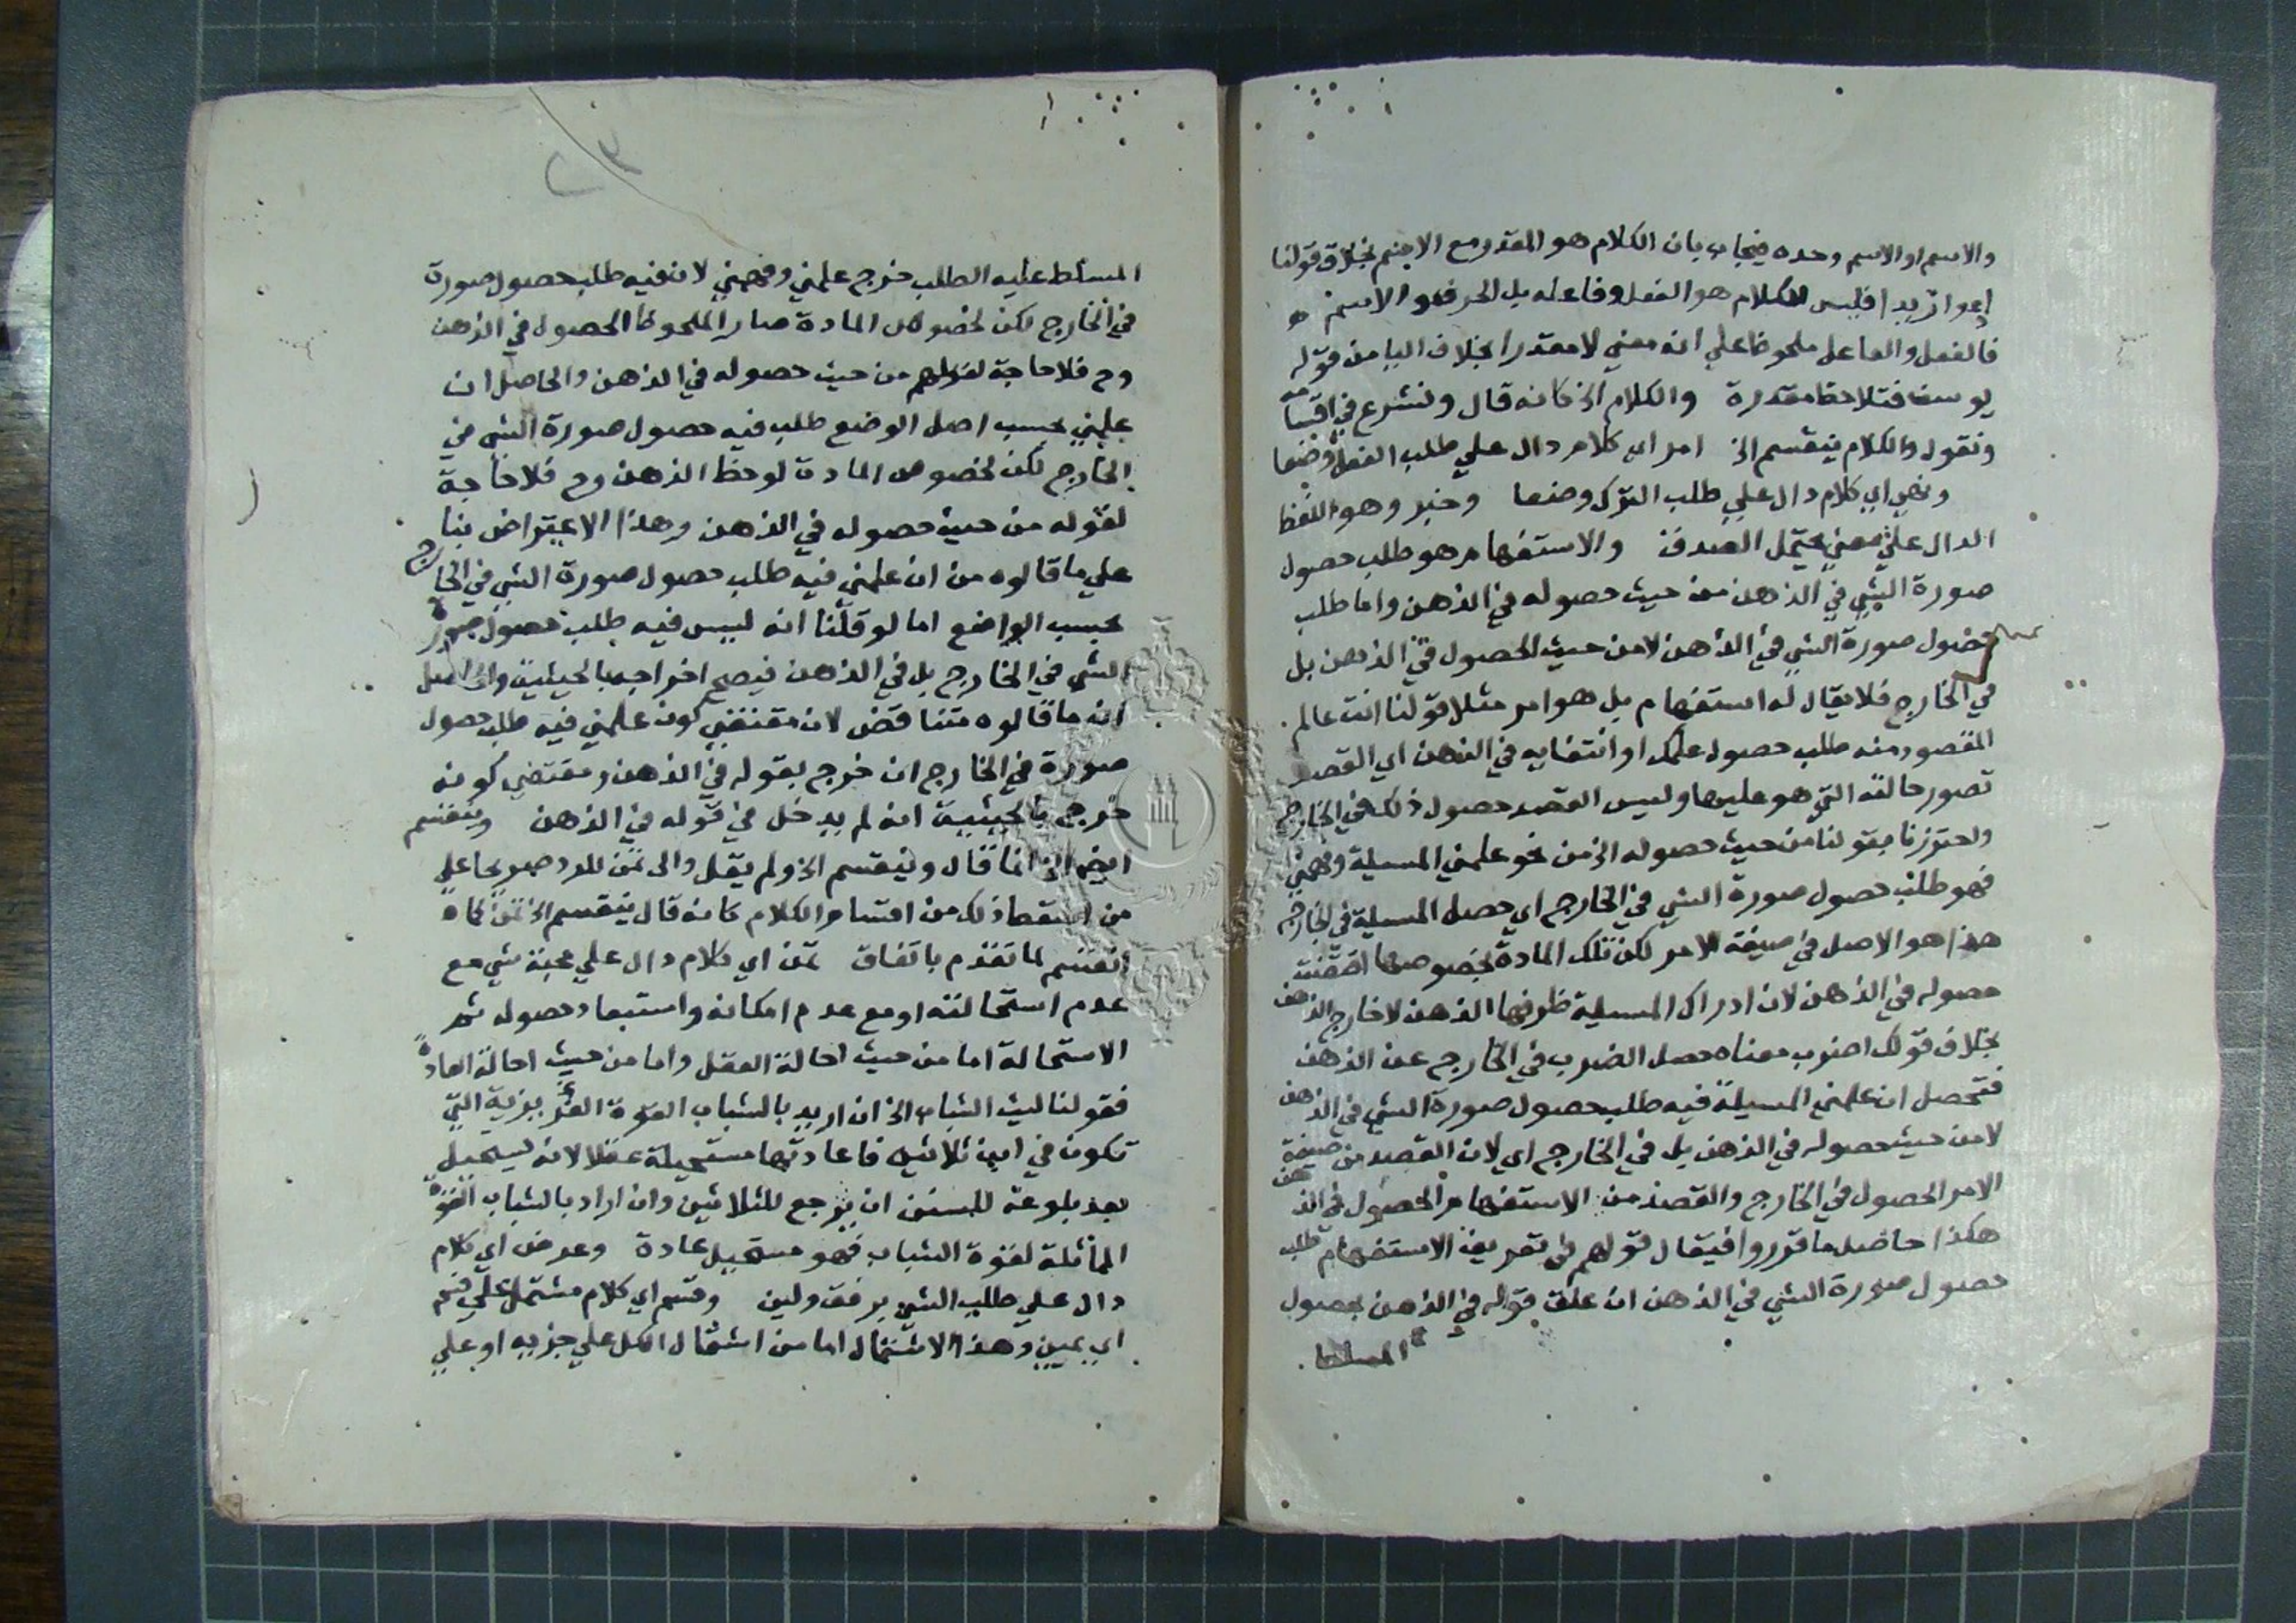 والاسم او الاسم وحده فيجاب بان الكلام هو المقدر مع الاسم بخلاف قولنا
ادعوا زيدا فليس الكلام هو الفعل وفاعله بل الحرف والاسم
فالفعل والفاعل ملحوظ علي انه معني لا مقدرا بخلاف اليا من قوله
يوسف فتلاحظ مقدرة والكلام الخ كانه قال ونشرع في اقسامه
ونقول والكلام ينقسم الخ امر اي كلام دال علي طلب الفعل وضعا
ونهي اي كلام دال علي طلب الترك وضعا وخبر وهو اللفظ
الدال علي معني يحتمل الصدق والاستفهام هو طلب حصول
صورة الشي في الذهن من حيث حصوله في الذهن واما طلب
حصول صورة الشي في الذهن لا من حيث الحصول في الذهن بل
في الخارج فلا يقال له استفهام بل هو امر مثلا قولنا انت عالم
المقصود منه طلب حصول علمك او انتفايه في الذهن اي القصد
تصور حالته التي هو عليها وليس القصد حصول ذلك في الخارج
واحترزنا بقولنا من حيث حصوله الخ من نحو علمني المسيلة وفهمني
فهو طلب حصول صورة الشي في الخارج اي حصل المسيلة في الخارج
هذا هو الاصل في صيغة الامر لكن تلك المادة بخصوصها اقتضت
حصوله في الذهن لان ادراك المسيلة ظرفها الذهن لا خارج الذهن
بخلاف قولك اضرب معناه حصل الضرب في الخارج عن الذهن
فتحصل ان علمني المسيلة فيه طلب حصول صورة الشي في الذهن
لا من حيث حصوله في الذهن بل في الخارج اي لان القصد من صيغة
الامر الحصول في الخارج والقصد من الاستفهام الحصول في الذهن
هكذا حاصل ما قرروا فيقال قولهم في تعريف الاستفهام طلب
حصول صورة الشي في الذهن ان علق قوله في الذهن بحصول
المسلط
٢٣
المسلط عليه الطلب خرج علمني وفهمني لان فيه طلب حصول صورة
في الخارج لكن لخصوص المادة صار الملحوظ الحصول في الذهن
وح فلا حاجة لقولهم من حيث حصوله في الذهن والحاصل ان
علمني بحسب اصل الوضع طلب فيه حصول صورة الشي في
الخارج لكن لخصوص المادة لوحظ الذهن وح فلا حاجة
لقوله من حيث حصوله في الذهن وهذا الاعتراض بنا
علي ما قالوه من ان علمني فيه طلب حصول صورة الشي في الخارج
بحسب الواضع اما لو قلنا انه ليس فيه طلب حصول صورة
الشي في الخارج بل في الذهن فيصح اخراجه بالحيثية والحاصل
ان ما قالوه متناقض لان مقتضي كون علمني فيه طلب حصول
صورة في الخارج ان خرج بقوله في الذهن ومقتضي كونه
خرج بالحيثية انه لم يدخل في قوله في الذهن وينقسم
ايضا الخ انما قال وينقسم الخ ولم يقل والى تمن للرد صريحا علي
من اسقط ذلك من اقسام الكلام كانه قال ينقسم الخ تمن كما
انقسم لما تقدم باتفاق تمن اي كلام دال علي محبة شي مع
عدم استحالته او مع عدم امكانه واستبعاد حصوله ثم
الاستحالة اما من حيث احالة العقل واما من حيث احالة العادة
فقولنا ليت الشباب الخ ان اريد بالشباب القوة الغريزية التي
تكون في ابن ثلاثين فاعادتها مستحيلة عقلا لانه يستحيل
بعد بلوغه للستين ان يرجع للثلاثين وان اراد بالشباب القوة
المماثلة لقوة الشباب فهو مستحيل عادة وعرض اي كلام
دال علي طلب الشي برفق ولين وقسم اي كلام مشتمل علي قسم
اي يمين وهذا الاشتمال اما من اشتمال الكل علي جزيه او علي